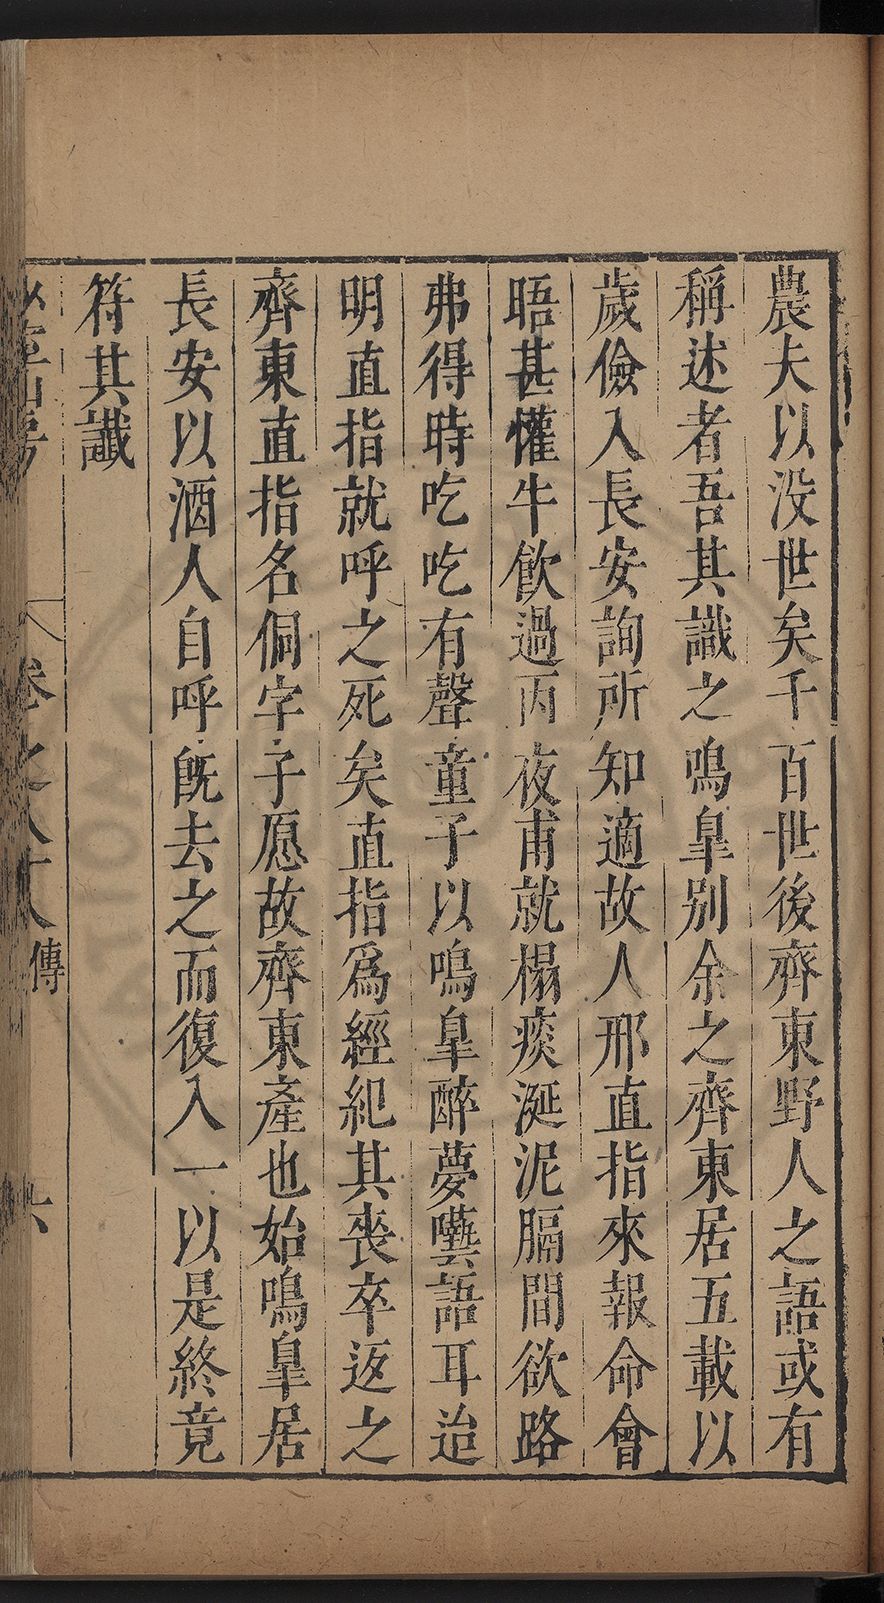 農夫以没世矣千百世後齊東野人之語或有
稱述者吾其識之鳴臯別余之齊東居五載以
歲儉入長安詢所知適故人邢直指來報命會
晤甚懽牛飲過丙夜甫就榻痰涎泥膈間欲咯
弗得時吃吃有聲童子以鳴臯醉夢囈語耳迨
明直指就呼之死矣直指爲經紀其喪卒返之
齊東直指名侗字子愿故齊東產也始鳴臯居
長安以酒人自呼旣去之而復入一以是終竟
符其讖
卷之八十八 傳 六